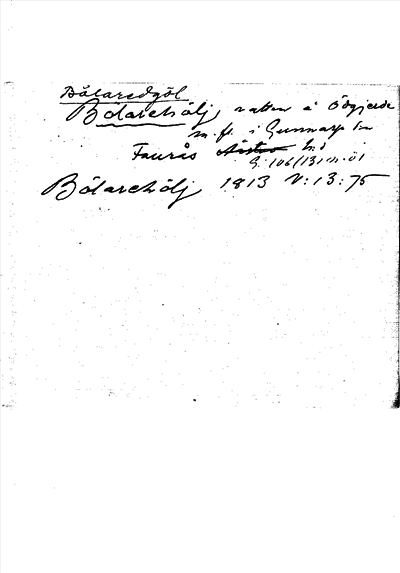 Bålaredgöl
Bolarehölj, vatten å Ödgärde
m. fl. i Gunnarp sn
Faurås hd
G: 106/131 n. ö1
Bólarehölj 1813 V: 13: 75